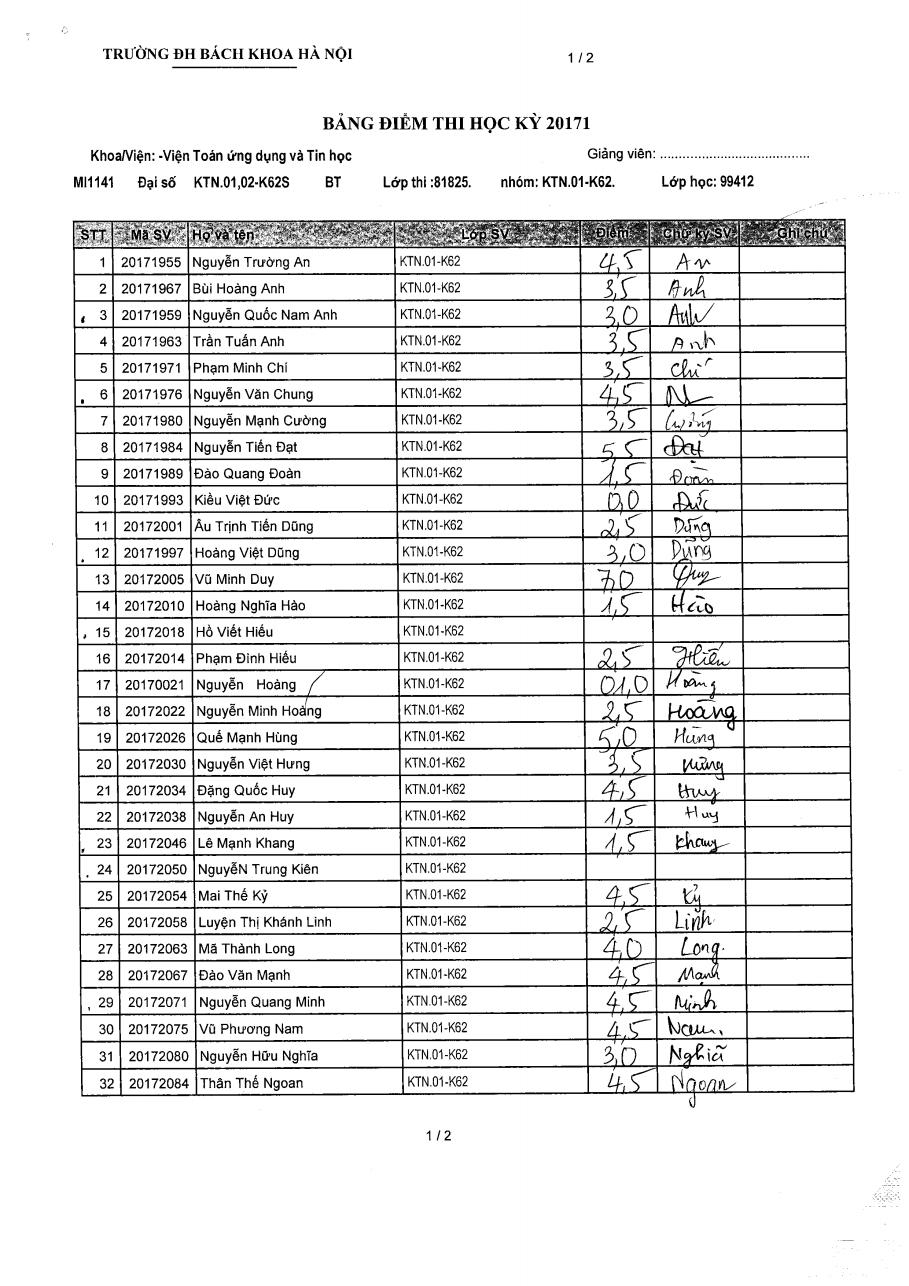 TRƯỜNG ĐH BÁCH KHOA HÀ NỘI 1 / 2
BẢNG ĐIỂM THI HỌC KỲ 20171
Khoa/Viện: -Viện Toán ứng dụng và Tin học Giảng viên: ........................................
MI1141 Đại số KTN.01,02-K62S BT Lớp thi :81825. nhóm: KTN.01-K62. Lớp học: 99412
STT Mã SV Họ và tên Lớp SV Điểm Chữ ký SV Ghi chú
1 20171955 Nguyễn Trường An KTN.01-K62 4,5 An
2 20171967 Bùi Hoàng Anh KTN.01-K62 3,5 Anh
3 20171959 Nguyễn Quốc Nam Anh KTN.01-K62 3,0 Anh
4 20171963 Trần Tuấn Anh KTN.01-K62 3,5 Anh
5 20171971 Phạm Minh Chí KTN.01-K62 3,5 Chí
6 20171976 Nguyễn Văn Chung KTN.01-K62 4,5
7 20171980 Nguyễn Mạnh Cường KTN.01-K62 3,5 Cường
8 20171984 Nguyễn Tiến Đạt KTN.01-K62 5,5 Đạt
9 20171989 Đào Quang Đoàn KTN.01-K62 1,5 Đoàn
10 20171993 Kiều Việt Đức KTN.01-K62 0,0 Đức
11 20172001 Âu Trịnh Tiến Dũng KTN.01-K62 2,5 Dũng
12 20171997 Hoàng Việt Dũng KTN.01-K62 3,0 Dũng
13 20172005 Vũ Minh Duy KTN.01-K62 7,0 Duy
14 20172010 Hoàng Nghĩa Hào KTN.01-K62 1,5 Hào
15 20172018 Hồ Viết Hiếu KTN.01-K62
16 20172014 Phạm Đình Hiếu KTN.01-K62 2,5 Hiếu
17 20170021 Nguyễn Hoàng KTN.01-K62 01,0 Hoàng
18 20172022 Nguyễn Minh Hoàng KTN.01-K62 2,5 Hoàng
19 20172026 Quế Mạnh Hùng KTN.01-K62 5,0 Hùng
20 20172030 Nguyễn Việt Hưng KTN.01-K62 3,5 Hưng
21 20172034 Đặng Quốc Huy KTN.01-K62 4,5 Huy
22 20172038 Nguyễn An Huy KTN.01-K62 1,5 Huy
23 20172046 Lê Mạnh Khang KTN.01-K62 1,5 Khang
24 20172050 NguyễN Trung Kiên KTN.01-K62
25 20172054 Mai Thế Kỷ KTN.01-K62 4,5 Kỷ
26 20172058 Luyện Thị Khánh Linh KTN.01-K62 2,5 Linh
27 20172063 Mã Thành Long KTN.01-K62 4,0 Long.
28 20172067 Đào Văn Mạnh KTN.01-K62 4,5 Mạnh
29 20172071 Nguyễn Quang Minh KTN.01-K62 4,5 Minh
30 20172075 Vũ Phương Nam KTN.01-K62 4,5 Nam
31 20172080 Nguyễn Hữu Nghĩa KTN.01-K62 3,0 Nghĩa
32 20172084 Thân Thế Ngoan KTN.01-K62 4,5 Ngoan
1 / 2